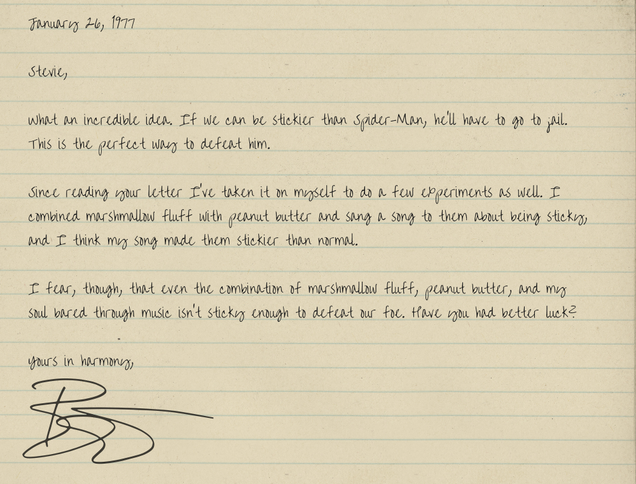 January 26, 1977
Stevie,
What an incredible idea. If we can be stickier than Spider-Man, he'll have to go to jail.
This is the perfect way to defeat him.
Since reading your letter I've taken it on myself to do a few experiments as well. I
combined marshmallow fluff with peanut butter and sang a song to them about being sticky,
and I think my song made them stickier than normal.
I fear, though, that even the combination of marshmallow fluff, peanut butter, and my
soul bared through music isn't sticky enough to defeat our foe. Have you had better luck?
Yours in harmony,